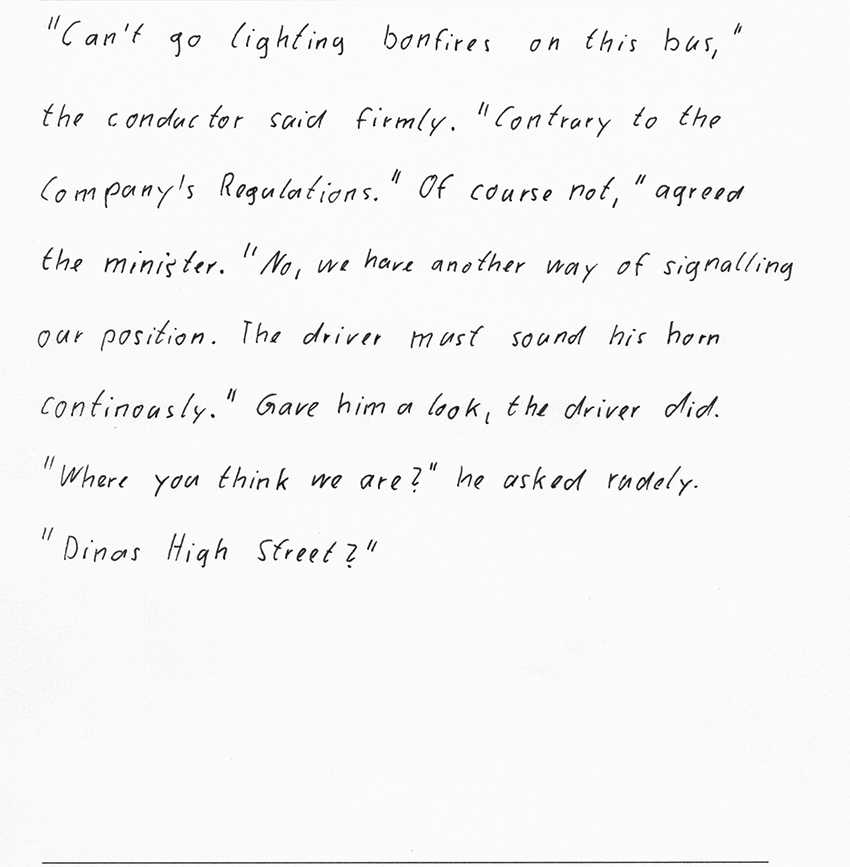 "Can't go lighting bonfires on this bus,"
the conductor said firmly. "Contrary to the
Company's Regulations." Of course not, "agreed
the minister. "No, we have another way of signalling
our position. The driver must sound his horn
continously." Gave him a look, the driver did.
"Where you think we are?" he asked rudely.
"Dinas High Street?"